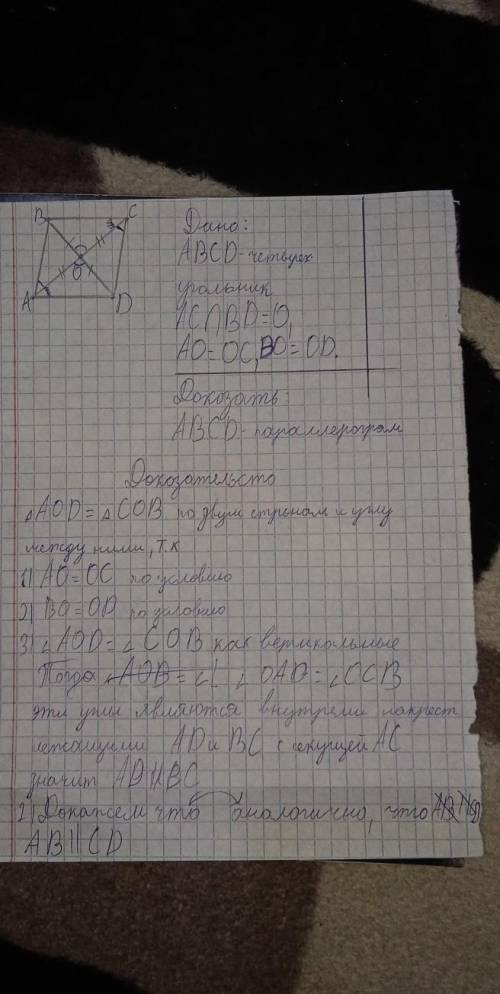 B C
O
A D
Дано:
ABCD-четырех
угольник
AC∩BD=O,
AO=OC, BO=OD.
Докозать:
ABCD-параллерограм
Докозательсто
△AOD=△COB по двум стронам и углу
между ними, т.к
1) AO=OC по условию
2) BO=OD по условию
3) ∠AOD=∠COB как вертикальные
Тогда ∠AOB=∠ ∠OAD=∠CCB
эти углы являются внутреми накрест
лежащими AD и BC с секущей AC
значит AD||BC
2) Докажем что аналогично, что
AB||CD